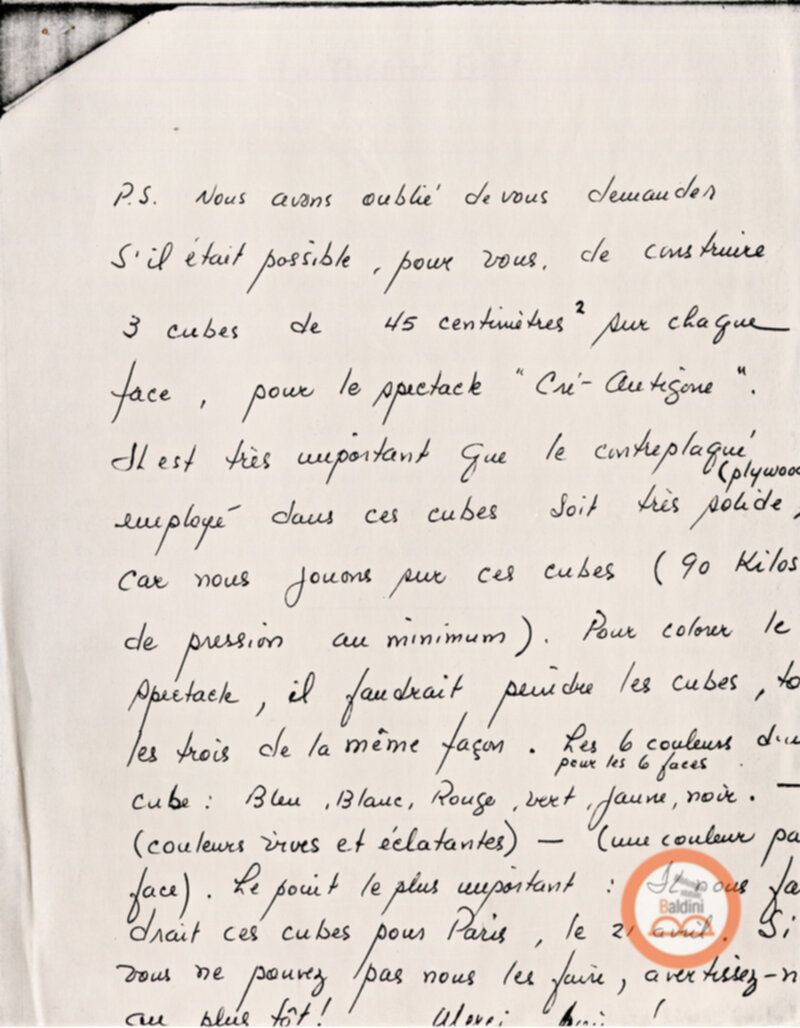 P.S. Nous avons oublié de vous demander
S'il était possible, pour vous, de construire
3 cubes de 45 centimètres² sur chaque
face, pour le spectacle "Cri-Antigone".
Il est très important que le contreplaqué
(plywoo
employé dans ces cubes soit très solide,
Car nous jouons sur ces cubes (90 Kilos
de pression au minimum). Pour colorer le
spectacle, il faudrait peindre les cubes, to
les trois de la même façon. Les 6 couleurs d'un
pour les 6 faces
cube: Bleu, Blanc, Rouge, vert, jaune, noir. —
(couleurs vives et éclatantes) — (une couleur pa
face). Le point le plus important : Il nous fa
drait ces cubes pour Paris, le 21 avril. Si
vous ne pouvez pas nous les faire, avertissez-n
au plus tôt! Merci !
Baldini